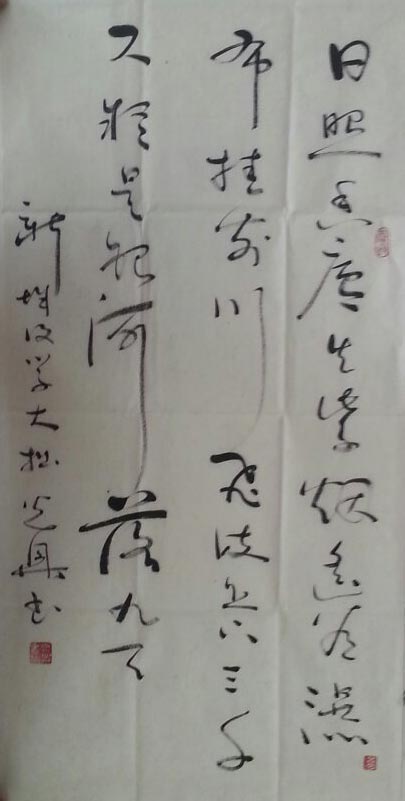 日照香庐生紫烟遥看瀑
布挂前川飞流直下三千
尺疑是银河落九天
新城汉学大松书